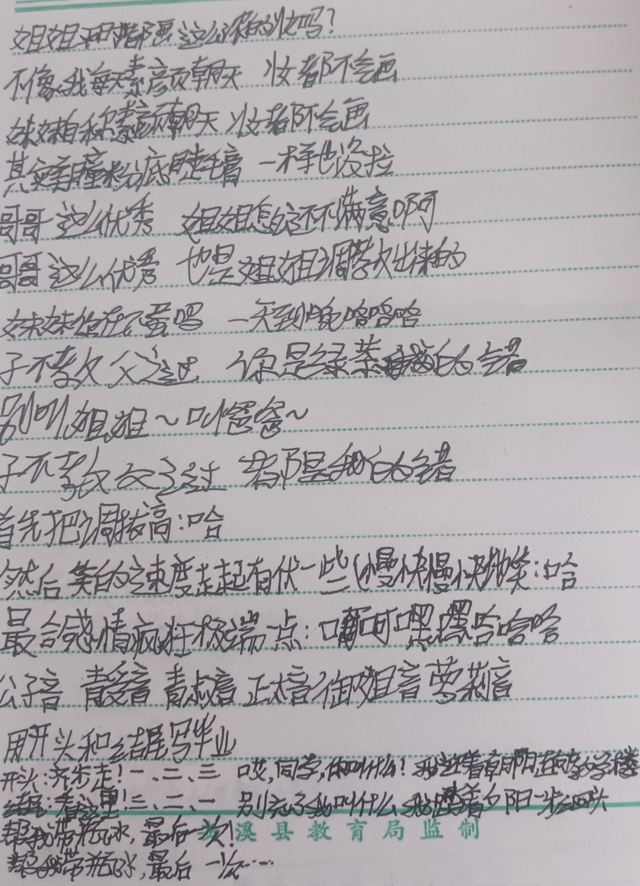 姐姐用都是这么浓的妆吗?
不像我每天素颜朝天 妆都不会画
妹妹自称素颜朝天 妆都不会画
其实美瞳粉底睫毛膏 一样也没拉
哥哥这么优秀 姐姐怎的还不满意啊
哥哥这么优秀 也是姐姐调教出来的
妹妹 一天到晚咯咯咯
子不教父之过 你是绿茶 我的错
别叫姐姐~叫爸爸~
子不教父之过 都是我的错
首先把调拔高:哈
然后笑的速度起有伏一些(慢快慢快 :哈
最合感情疯狂极端点: 呵嘿嘿哈哈哈
公子音 青受音 青叔音 正太音 御姐音 萝莉音
用开头和结尾写毕业
开头:齐步走!一、二、三 哎,同学,你叫什么!我 朝阳走向教学楼
结尾:看这里!三、二、一 别忘了我叫什么 我 夕阳一步三回头
帮我带瓶水,最后一次!
溪县教育局监制
帮我带瓶水,最后一次……